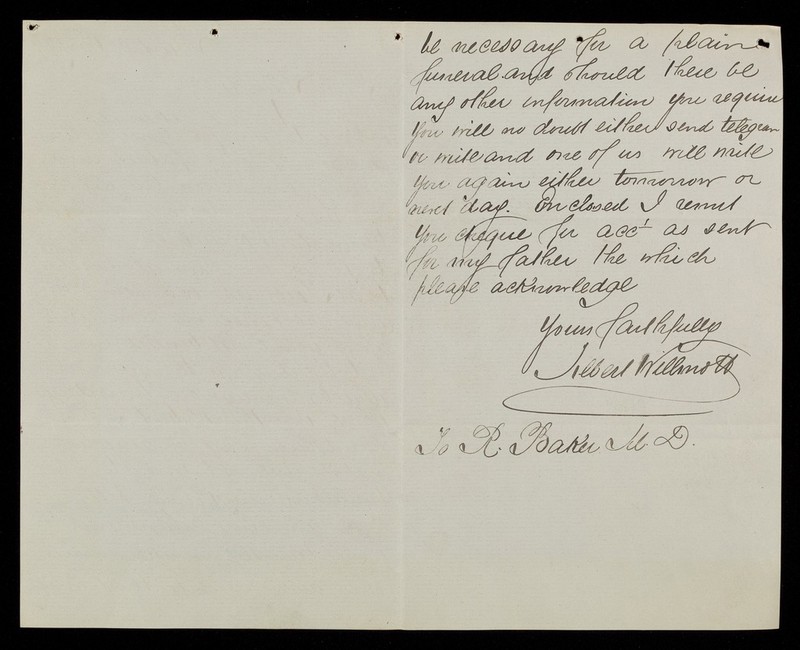 be necessary for a plain
funeral and should there be
any other information you require
you will no doubt either send telegram
or write and one of us will write
you again either tomorrow or
next day. Enclosed I remit
you cheque for acct as sent
for my father the which
please acknowledge
Yours faithfully
Albert Willmott
To R. Baker M.D.